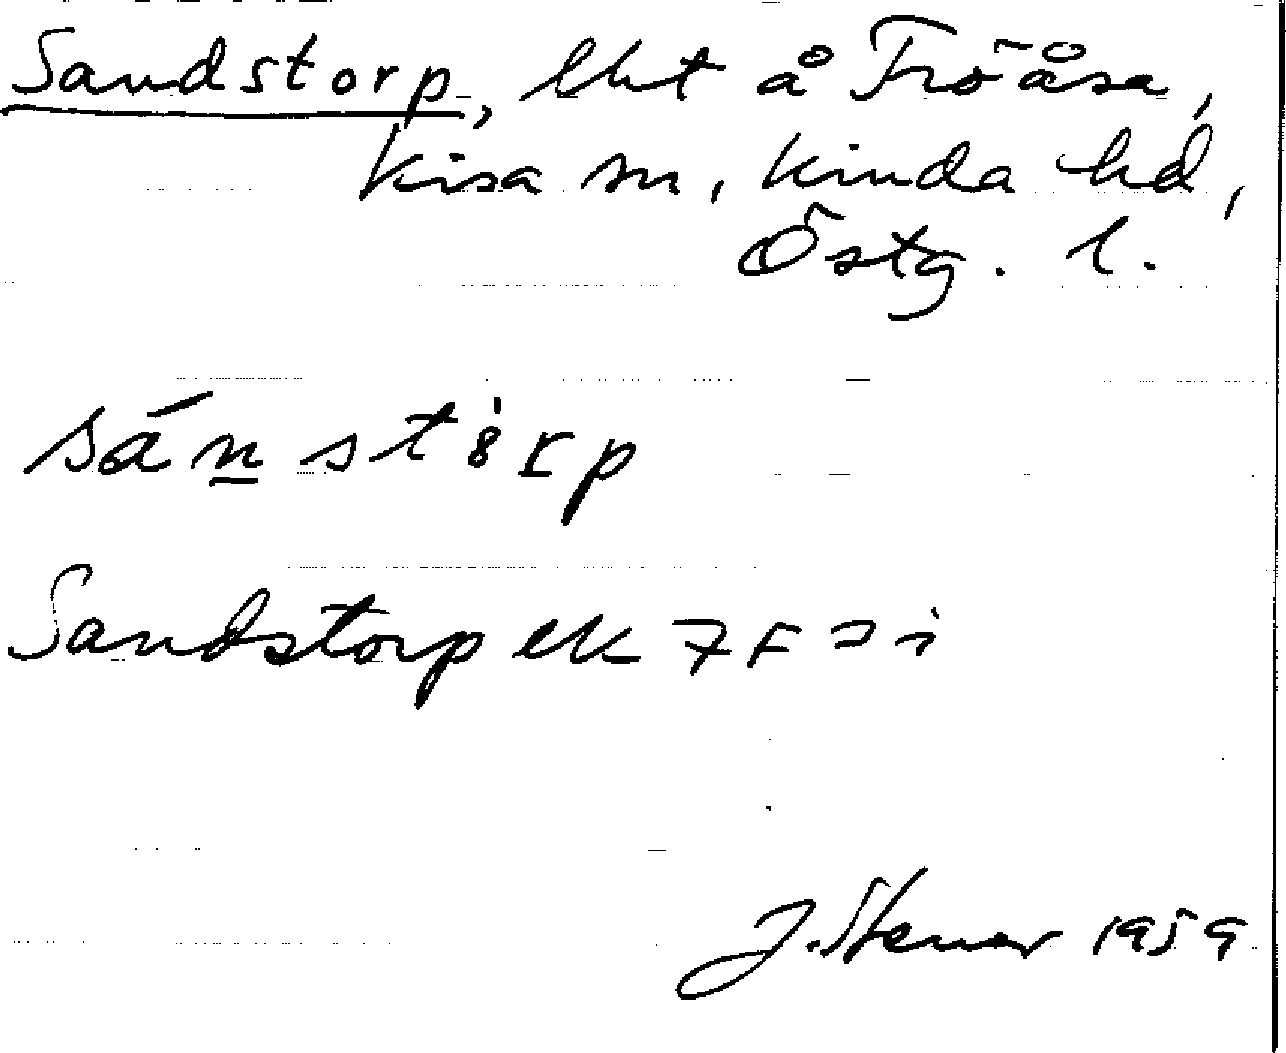 Sandstorp, lht å Fröåsa,
Kisa sn, Kinda hd,
Östg. l.
sánstòrp
Sandstorp ek 7F2i
J. Stenor 1959